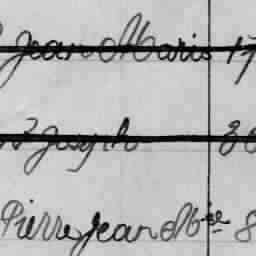 Jean Marie 17
Joseph 30
Pierre Jean Mie 8